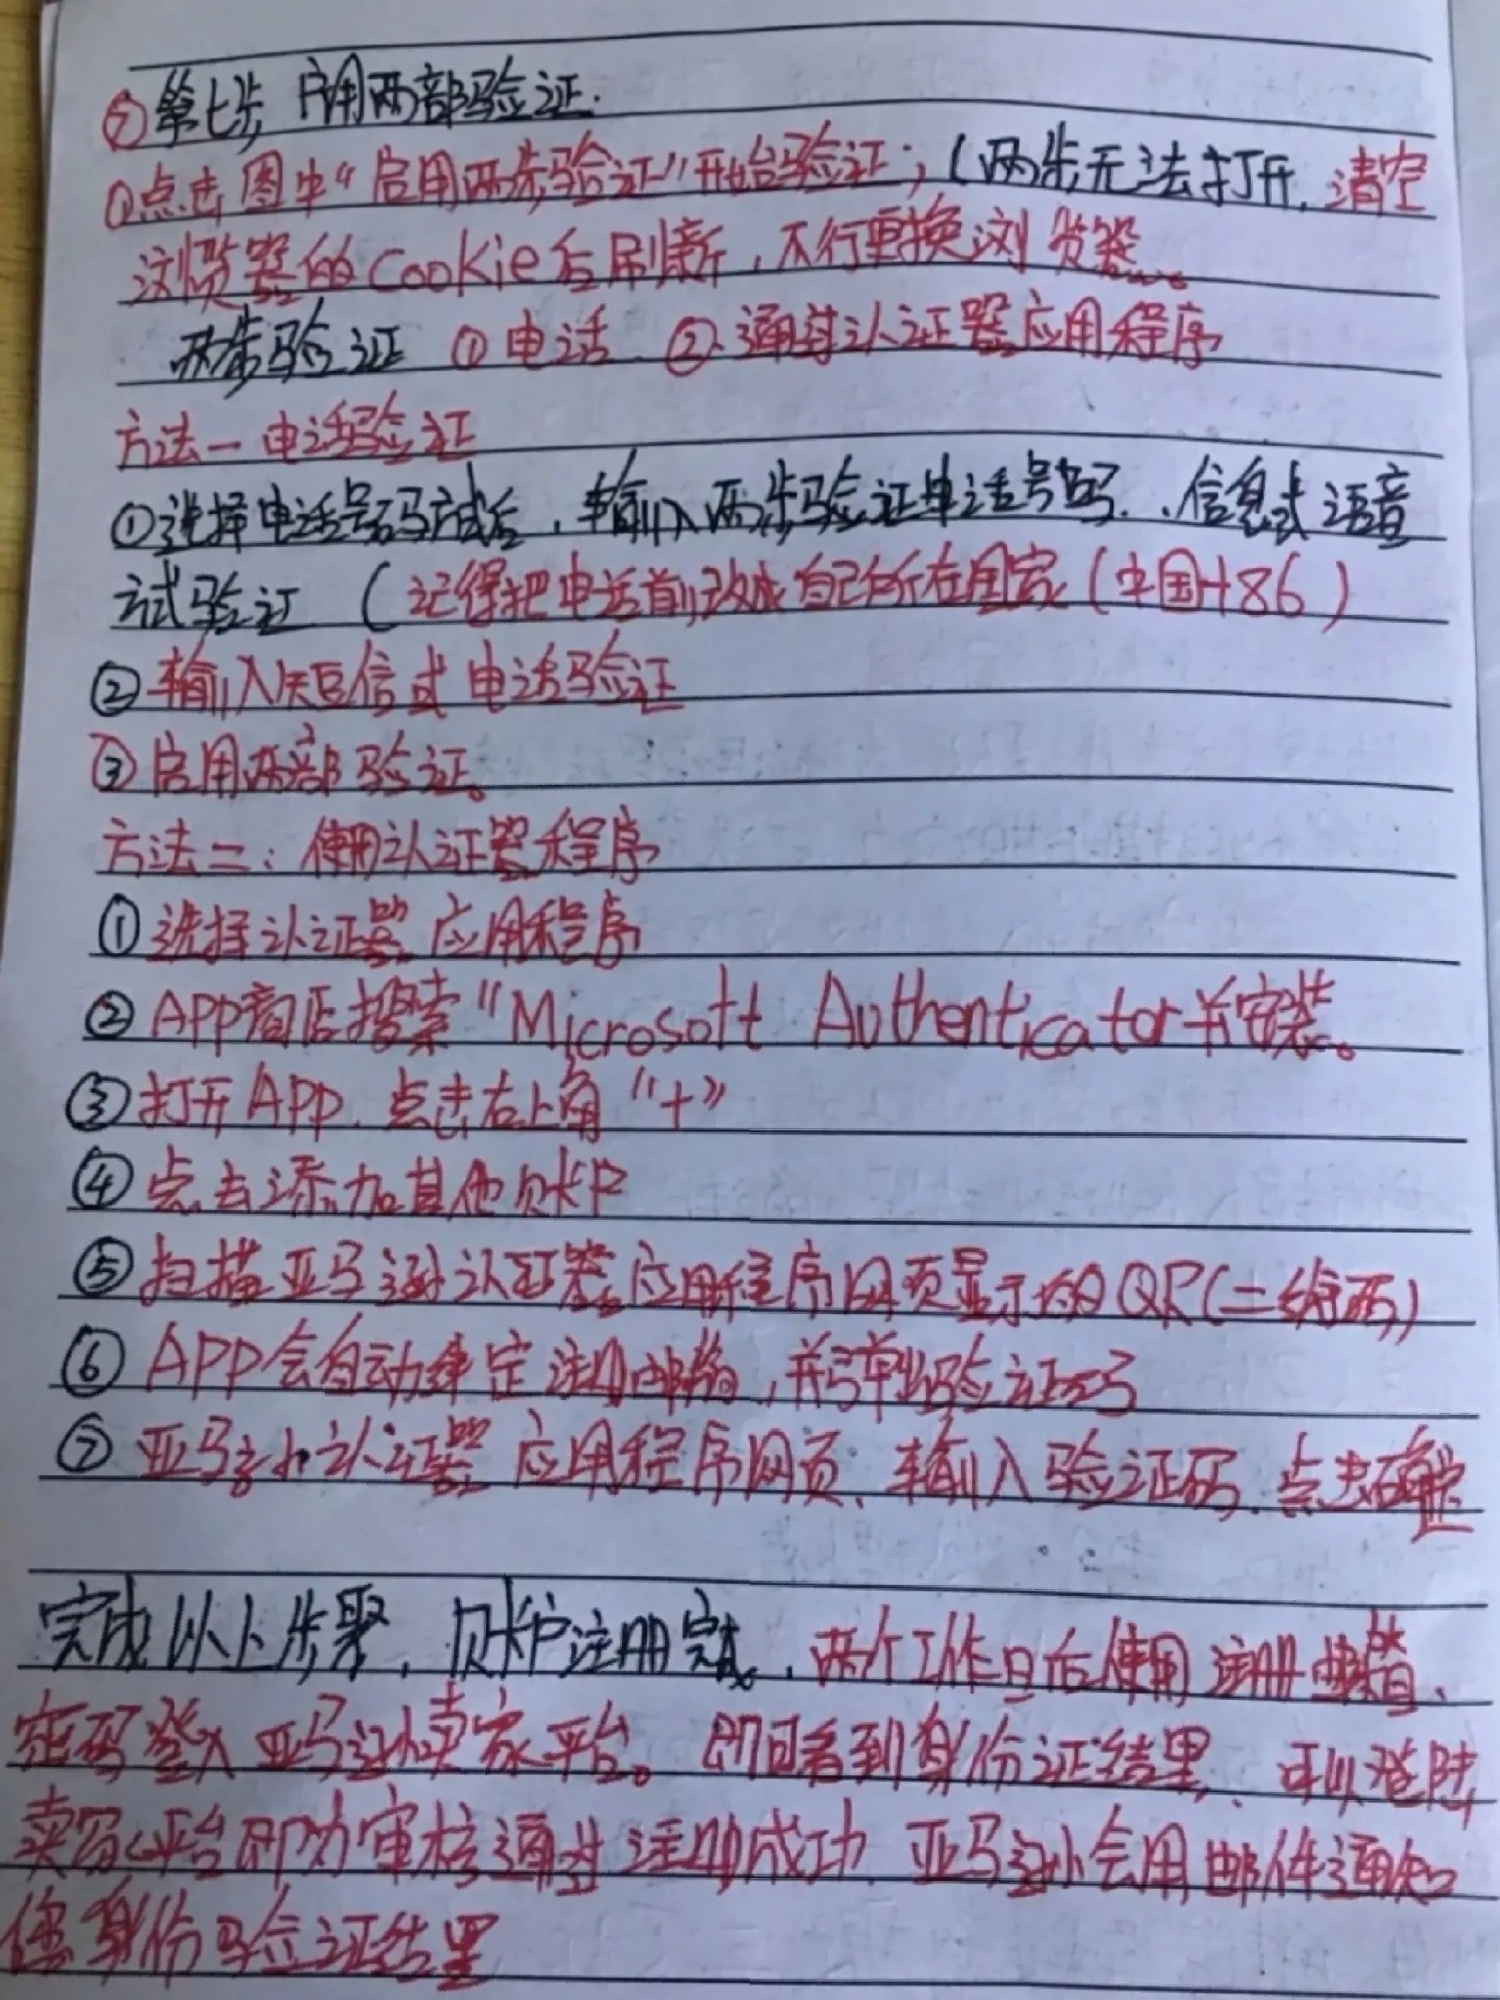 ⑦第七步 启用两部验证.
①点击图中“启用两步验证”开始验证；（两步无法打开，清空
浏览器的Cookie后刷新，不行更换浏览器。
两步验证 ①电话 ②通过认证器应用程序
方法一 电话验证
①选择电话号码完成后，输入两步验证电话号码、信息或语音
试验证（记得把电话前改成自己所在国家（中国+86）
②输入短信或电话验证
③启用两部验证。
方法二：使用认证器程序
①选择认证器应用程序
②APP商店搜索“Microsoft Authenticator并安装。
③打开APP，点击右上角“+”
④点击添加其他账户
⑤扫描亚马逊认证器应用程序网页显示的QR（二维码）
⑥APP会自动绑定注册邮箱，并弹出验证码
⑦亚马逊认证器应用程序网页，输入验证码，点击确定
完成以上步聚，账户注册完成。，两个工作日后使用注册邮箱、
密码登入亚马逊卖家平台。即可看到身份证结果，可以登陆
卖家平台即为审核通过注册成功，亚马逊会用邮件通知
您身份验证结果